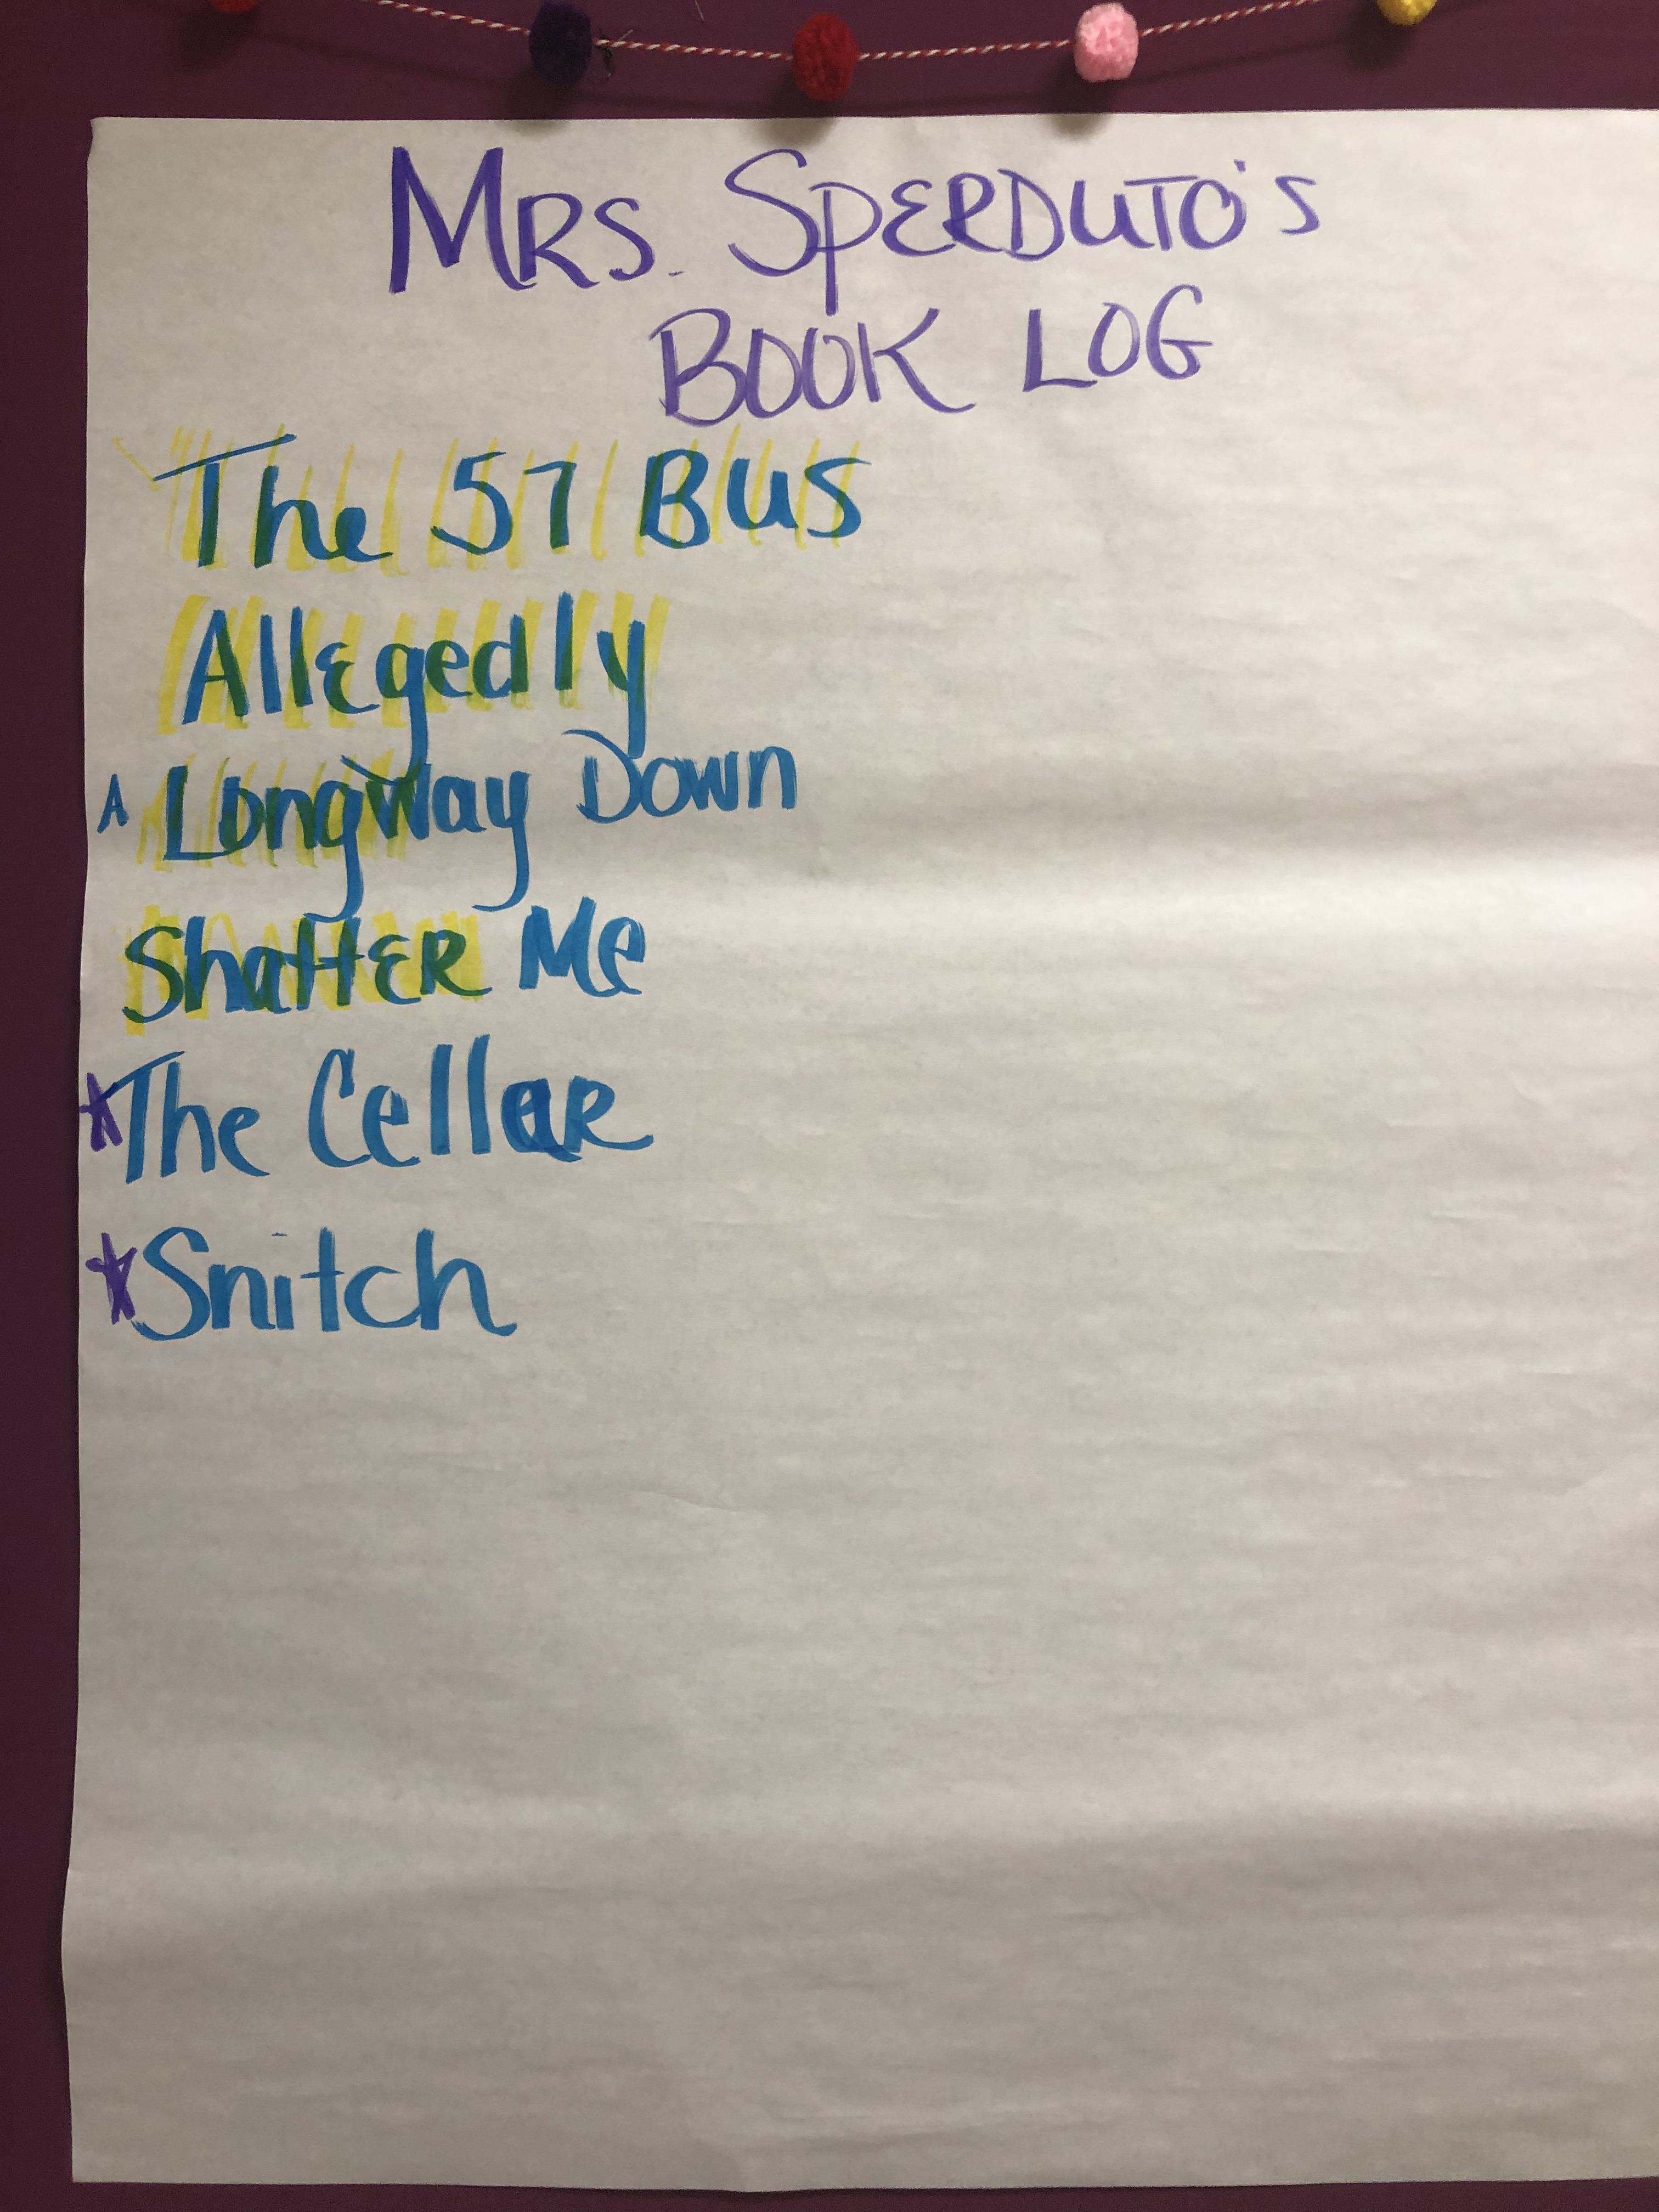 MRS. SPERDUTO'S
BOOK LOG
The 57 Bus
Allegedly
A Long Way Down
Shatter Me
The Cellar
Snitch